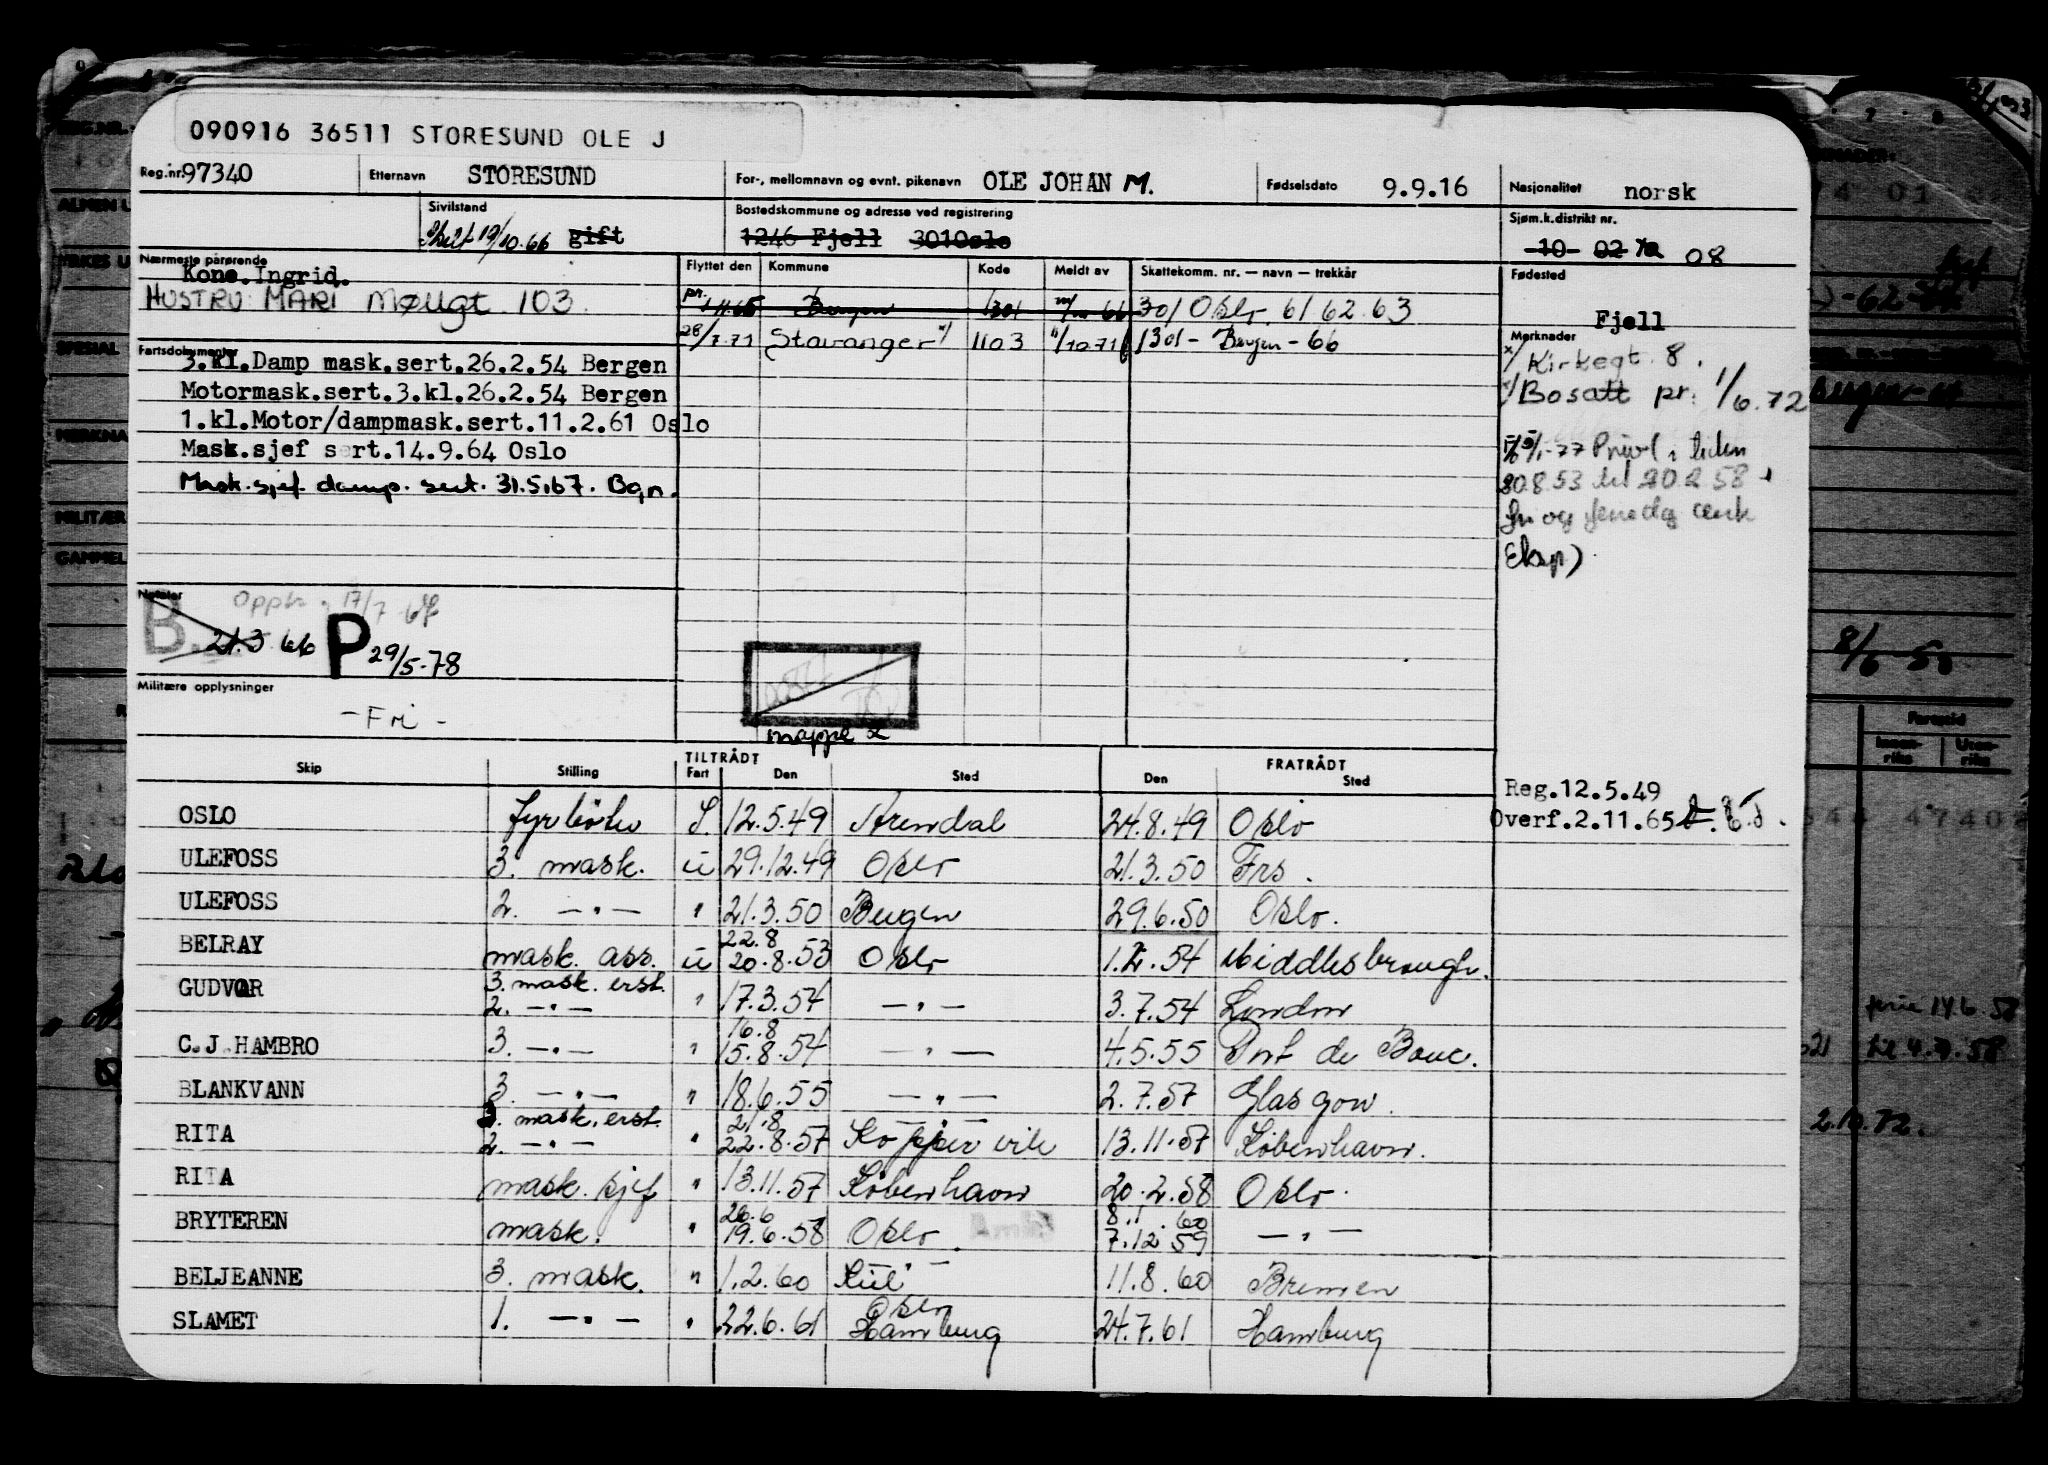 090916 36511 STORESUND OLE J
Reg.nr. 97340 Etternavn STORESUND For-, mellomnavn og evnt. pikenavn OLE JOHAN M. Fødselsdato 9.9.16 Nasjonalitet norsk
Sivilstand 19/10.66 gift
Bostedskommune og adresse ved registrering
1246 Fjell 301Oslo
Sjøm.k.distrikt nr.
10 02 08
Nærmeste pårørende
Kone. Ingrid.
HUSTRU MARI Møllgt 103
Flyttet den Kommune Kode Meldt av Skattekomm. nr. — navn — trekkår
pr. 1.11.65 Bergen 1301 66 301 Oslo. 61 62 63
28/7.71 Stavanger 1103 10.71 1301 - Bergen - 66
Fødested
Fjell
Merknader
x/ Kirkegt. 8.
Bosatt pr. 1/6.72
-77 Privl i tiden
20.8.53 til 20 2 58
Eksp)
Fartsdokumenter
3.kl.Damp mask.sert.26.2.54 Bergen
Motormask.sert.3.kl.26.2.54 Bergen
1.kl.Motor/dampmask.sert.11.2.61 Oslo
Mask.sjef sert.14.9.64 Oslo
Mask.sjef damp. sert. 31.5.67. Bgn.
Notater
B. 21.3 66 P 29/5-78
Militære opplysninger
- Fri -
mappe 2
Skip Stilling TILTRÅDT Fart Den Sted FRATRÅDT Den Sted
Reg.12.5.49
Overf.2.11.65
OSLO fyrbøter S. 12.5.49 Arendal 24.8.49 Oslo
ULEFOSS 3. mask. u 29.12.49 Oslo 21.3.50 Frs.
ULEFOSS 2. — " — " 21.3.50 Bergen 29.6.50 Oslo.
BELRAY mask. ass. u 22.8 20.8.53 Oslo 1.2.54 Middlesbrough.
GUDVOR 3. mask. erst. 2. — " — " 17.3.54 — " — 3.7.54 London
C.J.HAMBRO 3. — " — " 16.8 15.8.54 — " — 4.5.55 Port de Bouc.
BLANKVANN 3. — " — " 18.6.55 — " — 2.7.57 Glasgow.
RITA 3. mask. erst. 2. — " — " 21.8 22.8.57 Koppervik 13.11.57 København.
RITA mask. sjef " 13.11.57 København 20.2.58 Oslo.
BRYTEREN mask. " 26.6 19.6.58 Oslo. 8.1.60 7.12 59 — " —
BELJEANNE 3. mask. " 1.2.60 Kiel 11.8.60 Bremen
SLAMET 1. — " — " 22.6.61 Oslo Hamburg 24.7.61 Hamburg
8/6-50
ferie 14.6.58
til 4.7.58
2.10.72.